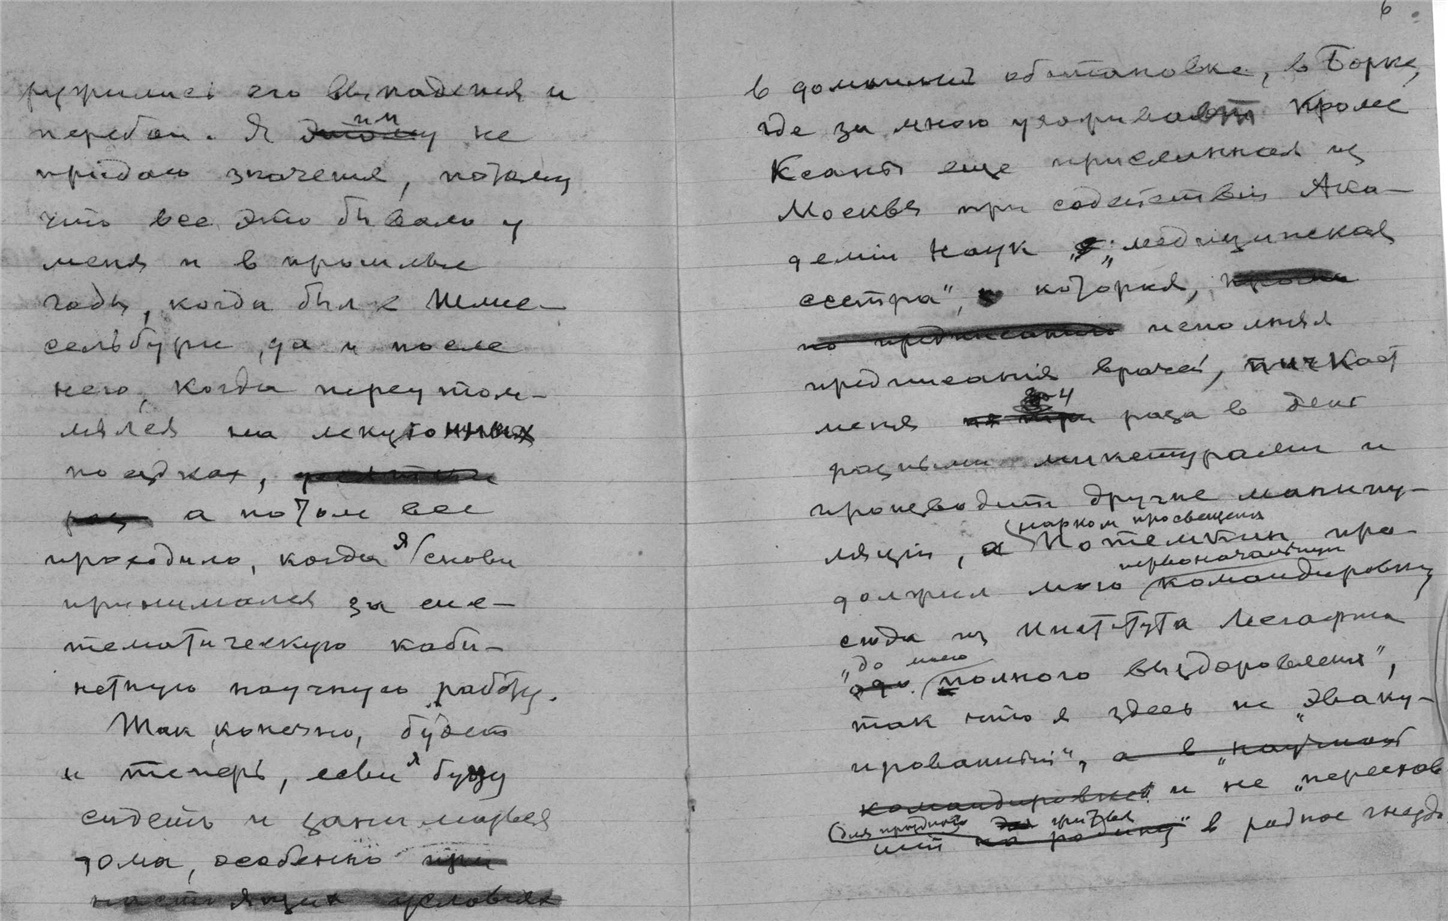 ружились его выпадения и
перебои. Я этому им не
придаю значения, потому
что все это бывало у
меня и в прошлые
годы, когда был в Шлис-
сельбурге, да и после
него, когда переутом-
лялся на лекционных
поездках,
раз а потом все
проходило, когда я снова
принимался за сис-
тематическую каби-
нетную научную работу.
Так, конечно, будет
и теперь, если я буду
сидеть и заниматься
дома, особенно при
настоящих условиях
6
в домашней обстановке, в Борке,
где за мною ухаживает кроме
Ксаны еще присланная из
Москвы при содействіи Ака-
деміи Наук „медицинская
сестра", которая,
по предписанію исполняя
предписанія врачей, пичкает
меня 4 раза в день
разными микстурами и
производит другие манипу-
ляціи, а нарком просвещения Потемкин про-
должил мою первоначальную командировку
сюда из Института Лесгафта
„до моего полного выздоровления",
так что я здесь не „эваку-
ированный", а в „научной
командировке" и не
на родину" в родное гнездо